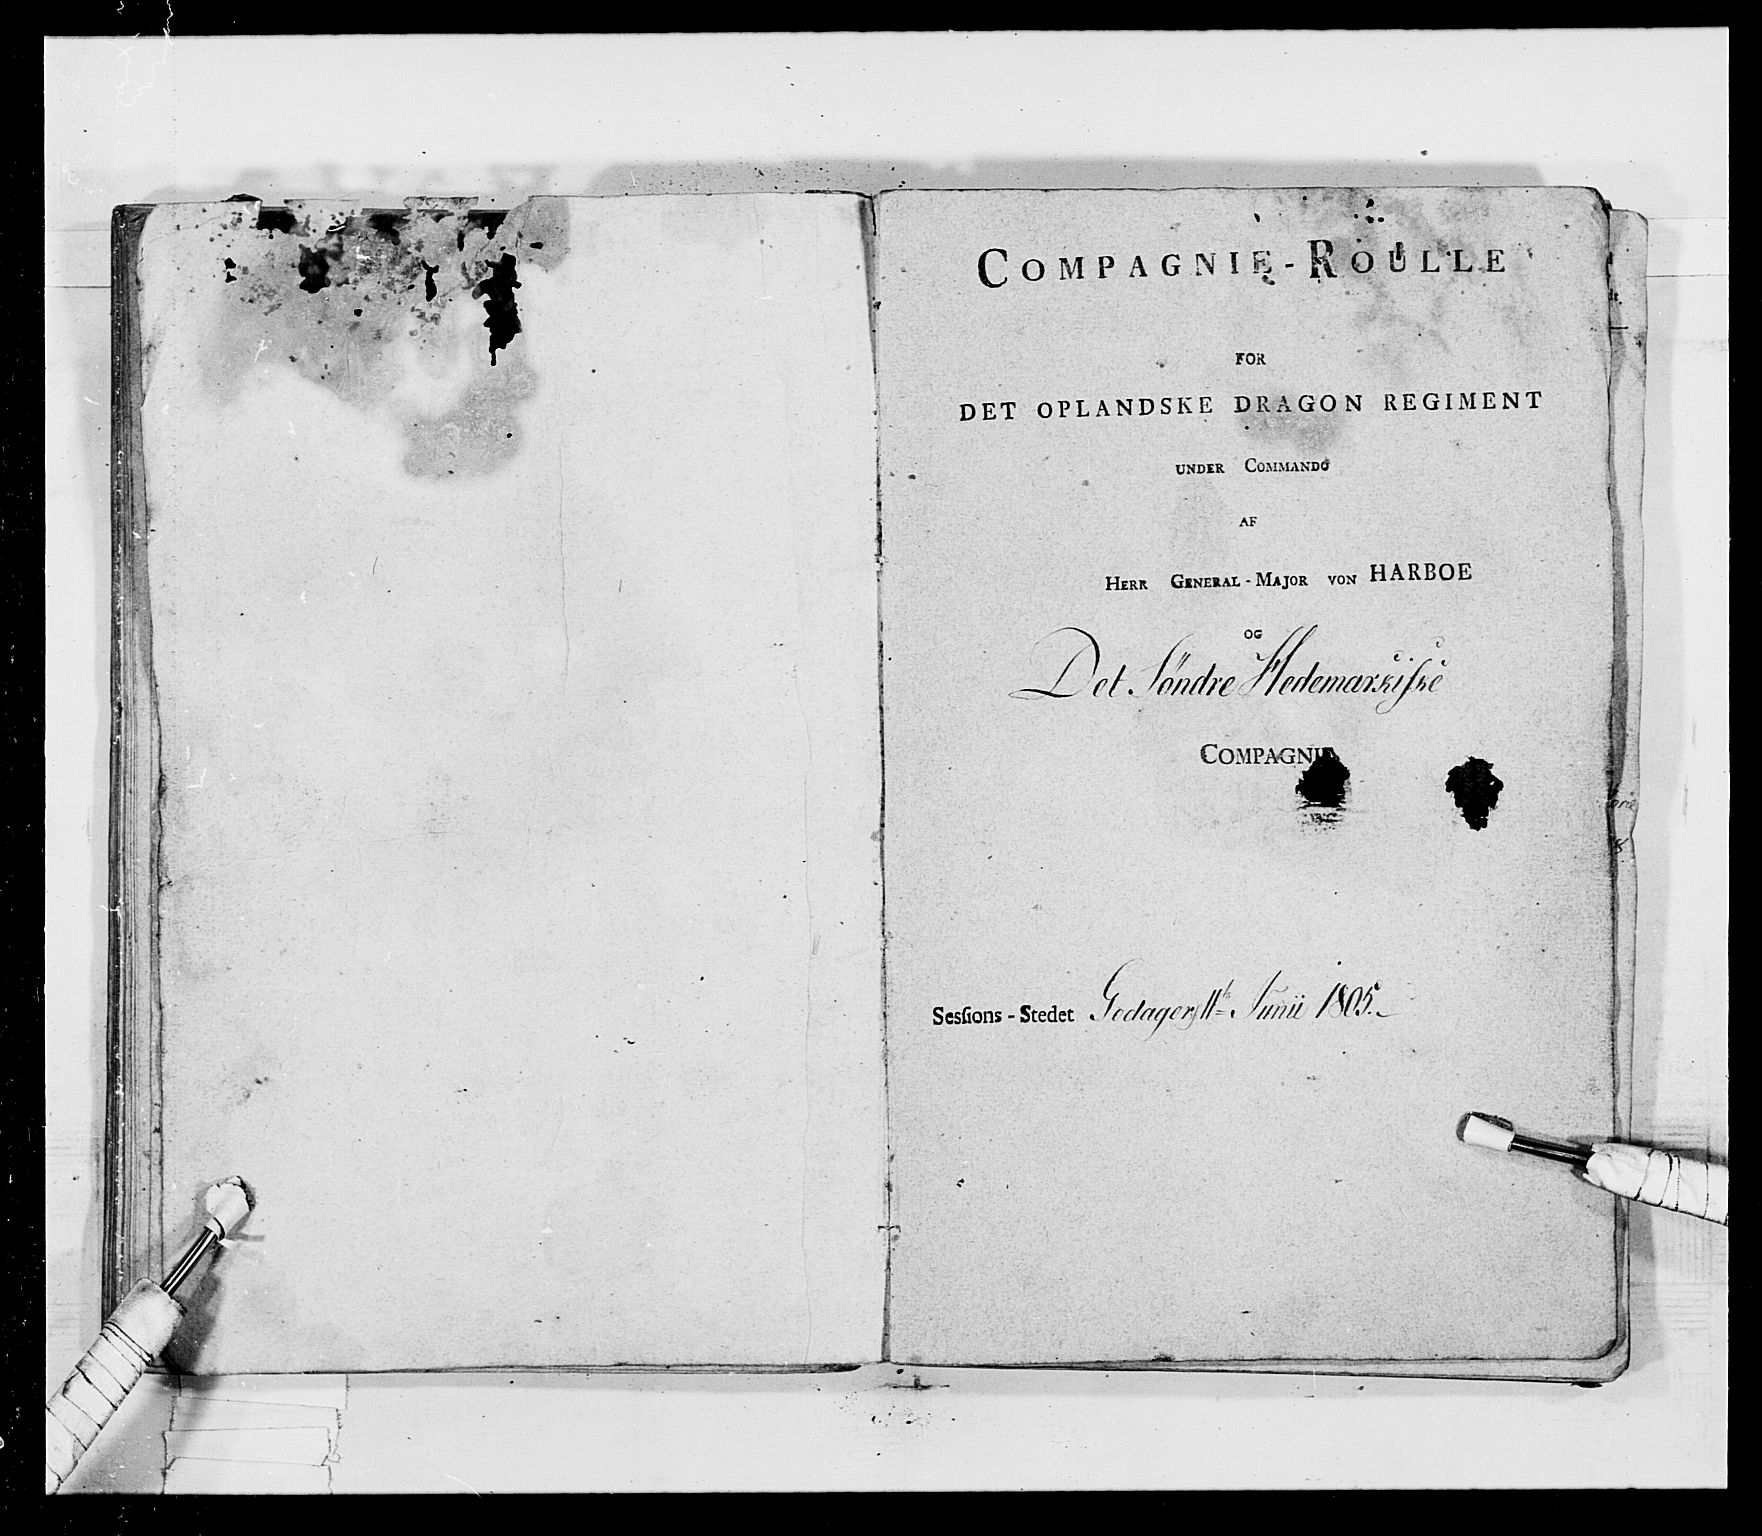 COMPAGNIE-ROULLE
FOR
DET OPLANDSKE DRAGON REGIMENT
UNDER COMMANDO
AF
HERR GENERAL-MAJOR VON HARBOE
OG
Det Søndre Hedemarkiske
COMPAGNIE
Sesſions-Stedet Gedager 11te Junii 1805.